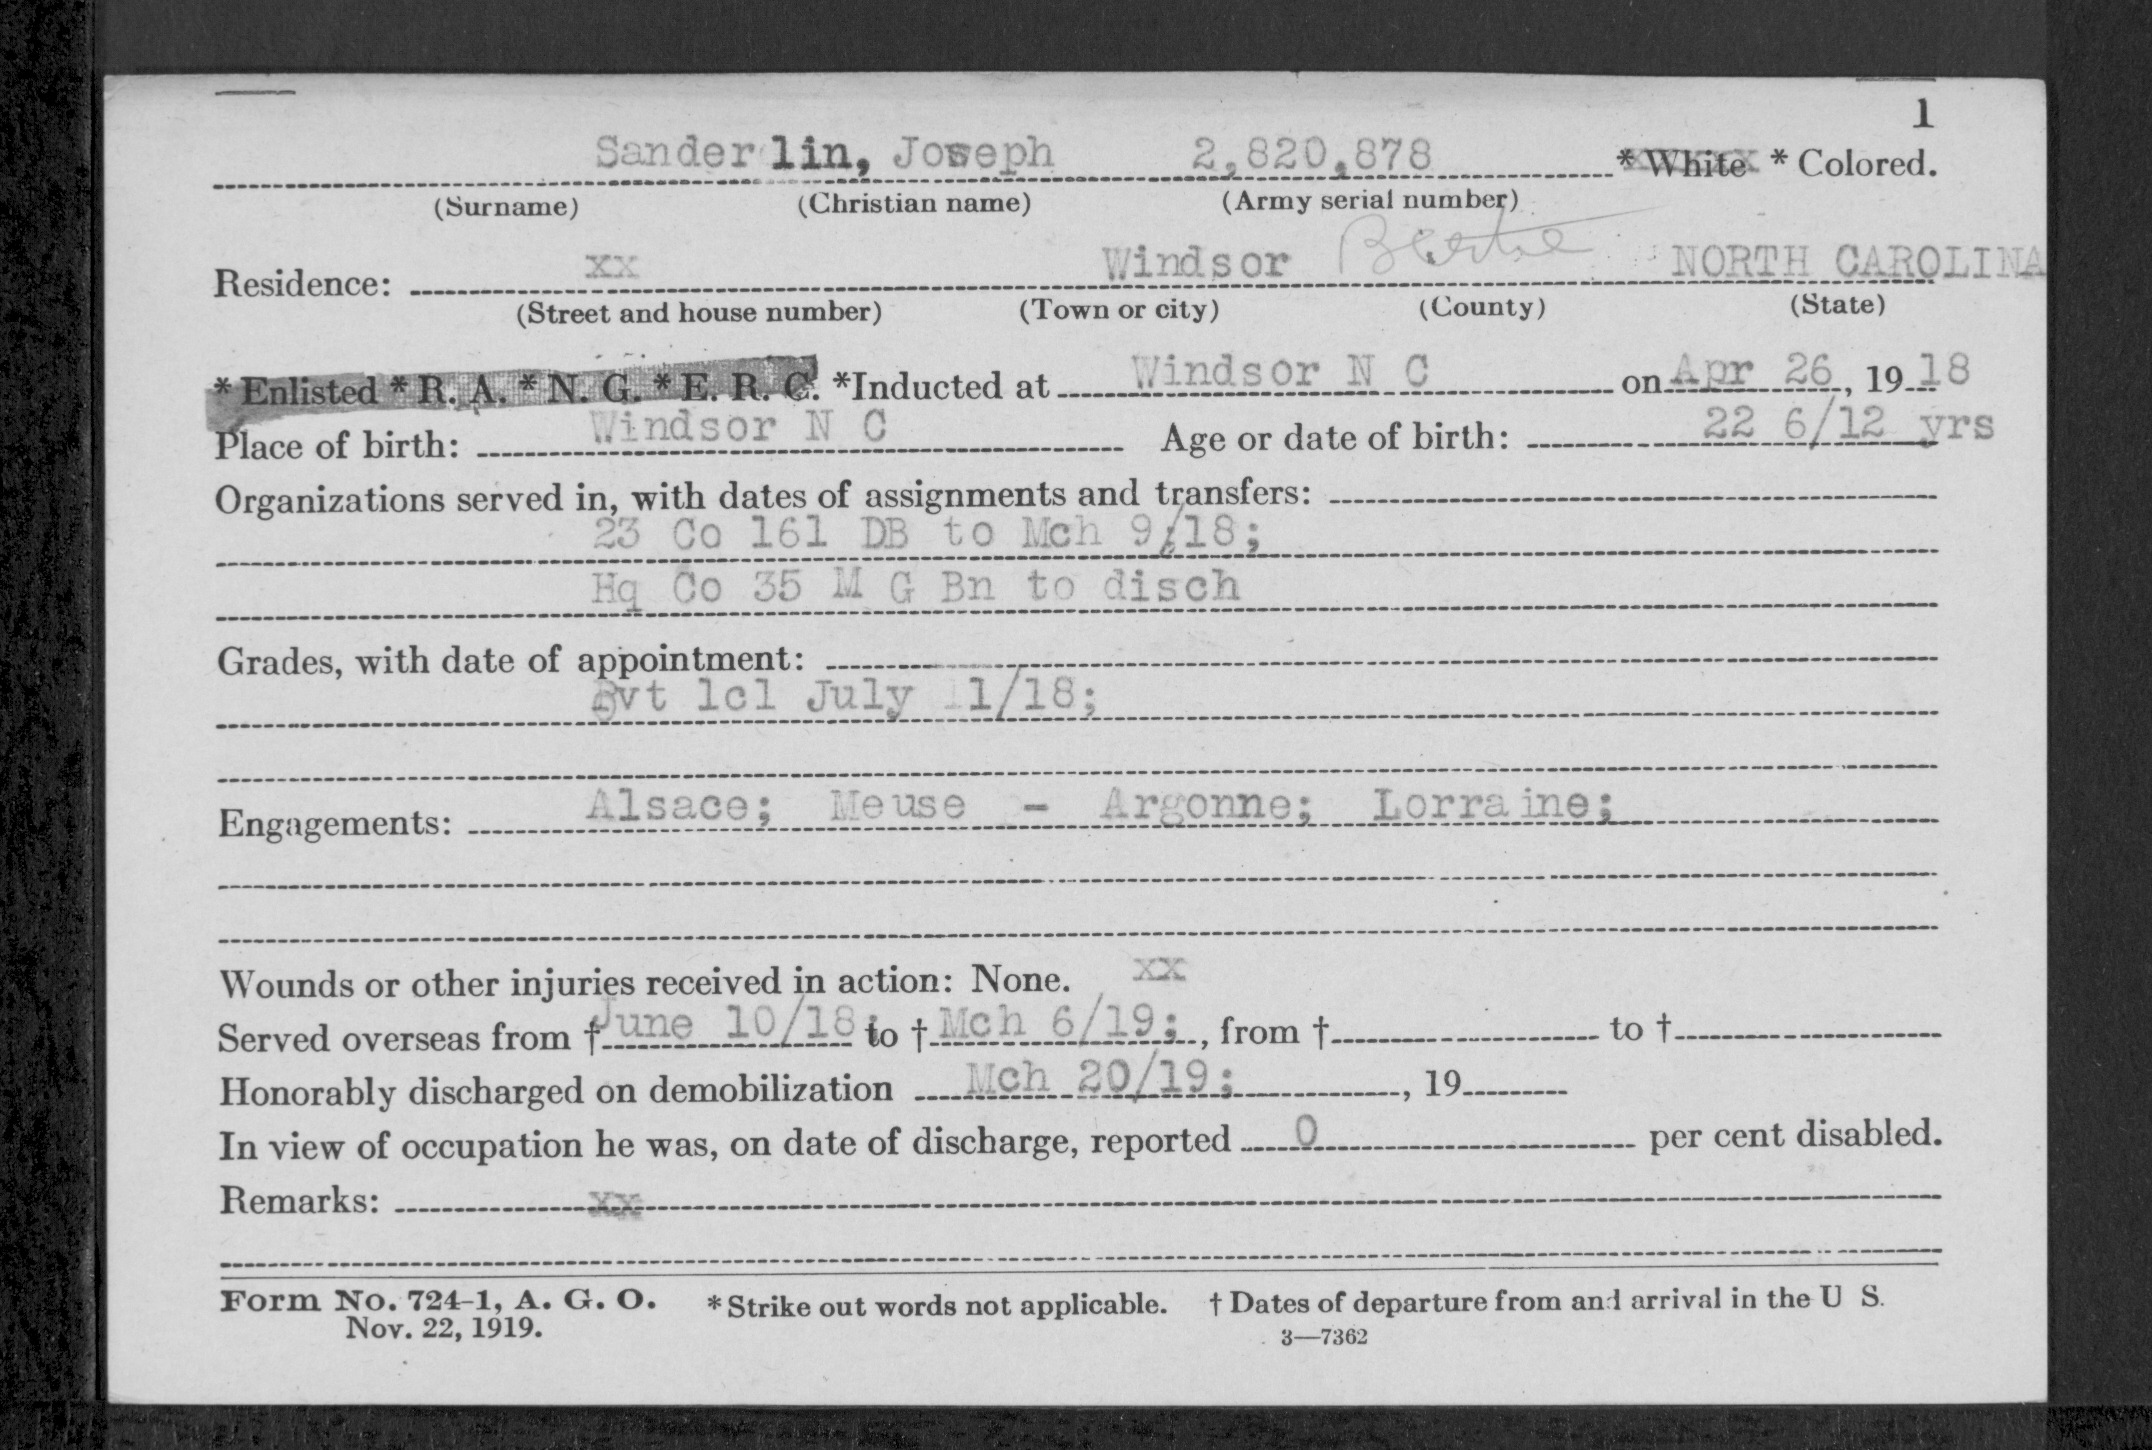 1
Sanderlin, Joseph 2,820,878 * White * Colored.
(Surname) (Christian name) (Army serial number)
Residence: xx Windsor Bertie NORTH CAROLINA
(Street and house number) (Town or city) (County) (State)
* Enlisted * R. A. * N. G. * E. R. C. *Inducted at Windsor N C on Apr 26, 19 18
Place of birth: Windsor N C Age or date of birth: 22 6/12 yrs
Organizations served in, with dates of assignments and transfers:
23 Co 161 DB to Mch 9/18;
Hq Co 35 M G Bn to disch
Grades, with date of appointment:
Pvt 1cl July 1/18;
Engagements: Alsace; Meuse - Argonne; Lorraine;
Wounds or other injuries received in action: None. xx
Served overseas from † June 10/18; to † Mch 6/19; , from † to †
Honorably discharged on demobilization Mch 20/19; , 19
In view of occupation he was, on date of discharge, reported 0 per cent disabled.
Remarks: xx
Form No. 724-1, A. G. O. * Strike out words not applicable. † Dates of departure from and arrival in the U S.
Nov. 22, 1919. 3—7362